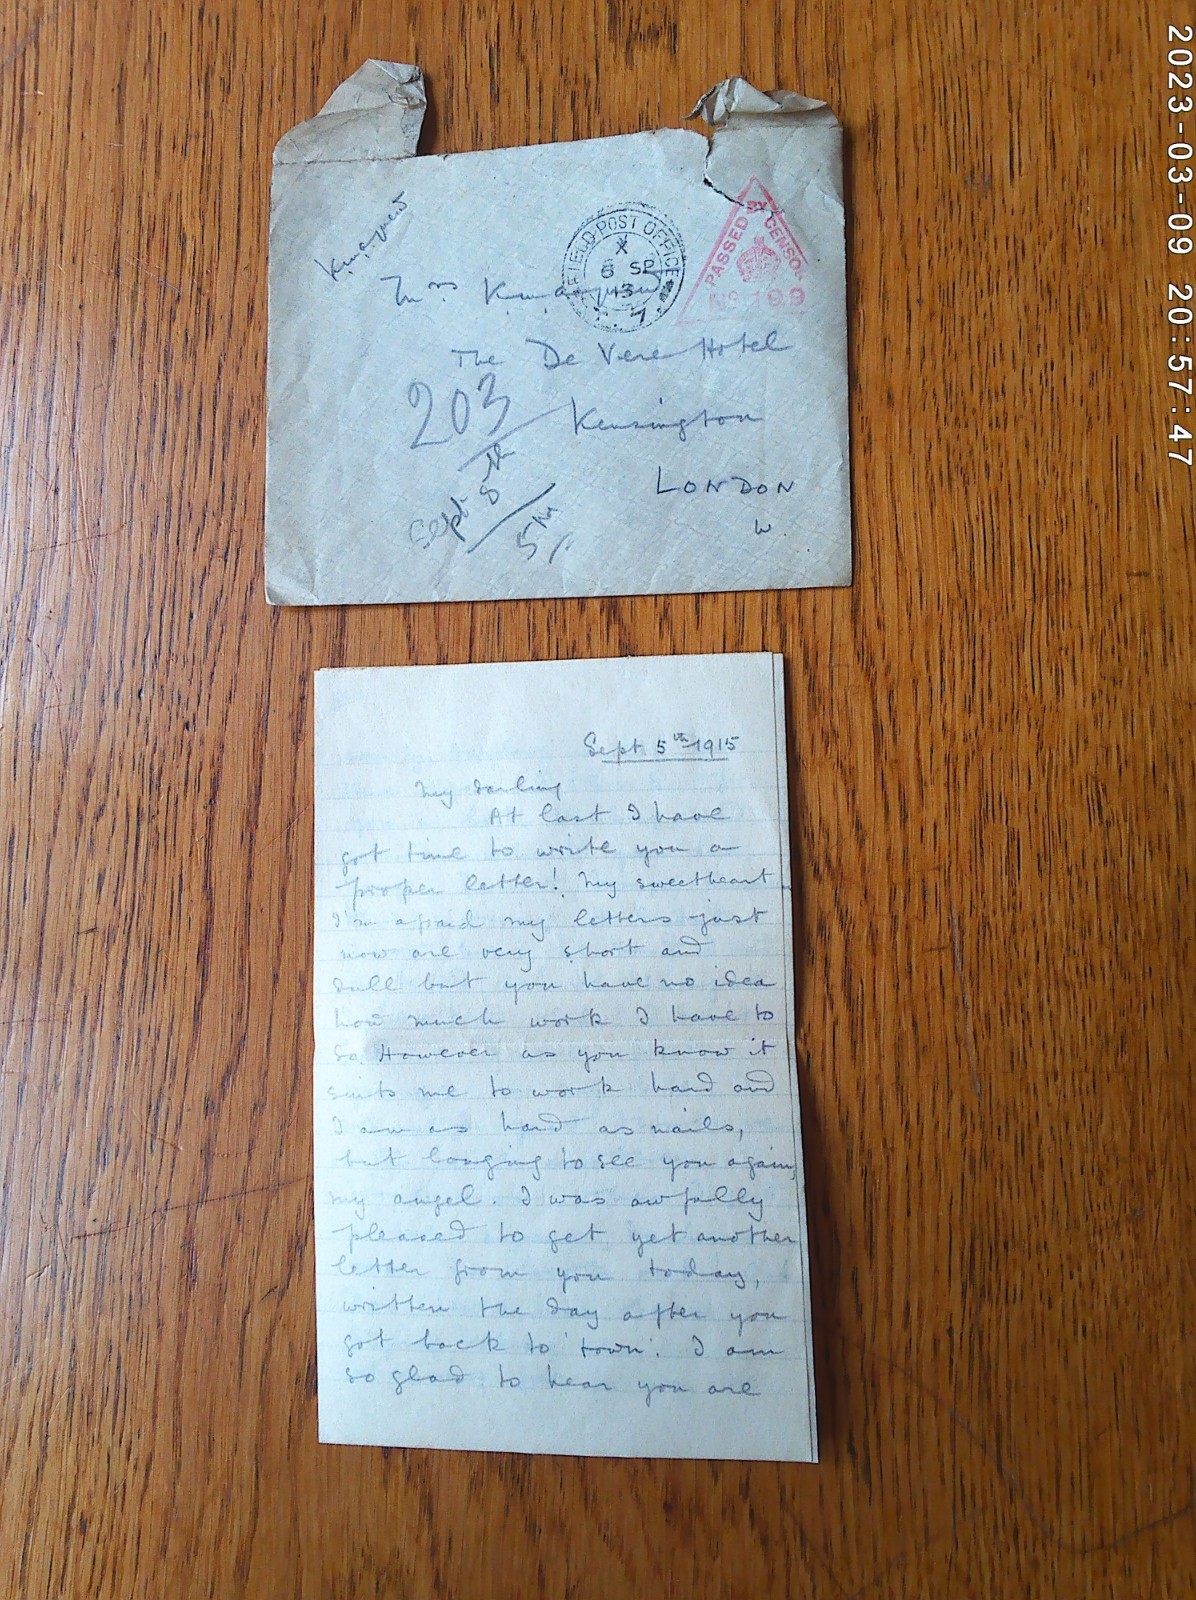 2023-03-09 20:57:47
FIELD POST OFFICE
X
6 SP
15
7
PASSED BY CENSOR
No 109
Mrs
The De Vere Hotel
203
Kensington
Sept 8th
5th
LONDON
W.
Sept 5th 1915
My darling
At last I have
got time to write you a
proper letter! My sweetheart
I'm afraid my letters just
now are very short and
dull but you have no idea
how much work I have to
do. However as you know it
suits me to work hard and
I am as hard as nails,
but longing to see you again,
my angel. I was awfully
pleased to get yet another
letter from you today,
written the day after you
got back to 'town'. I am
so glad to hear you are